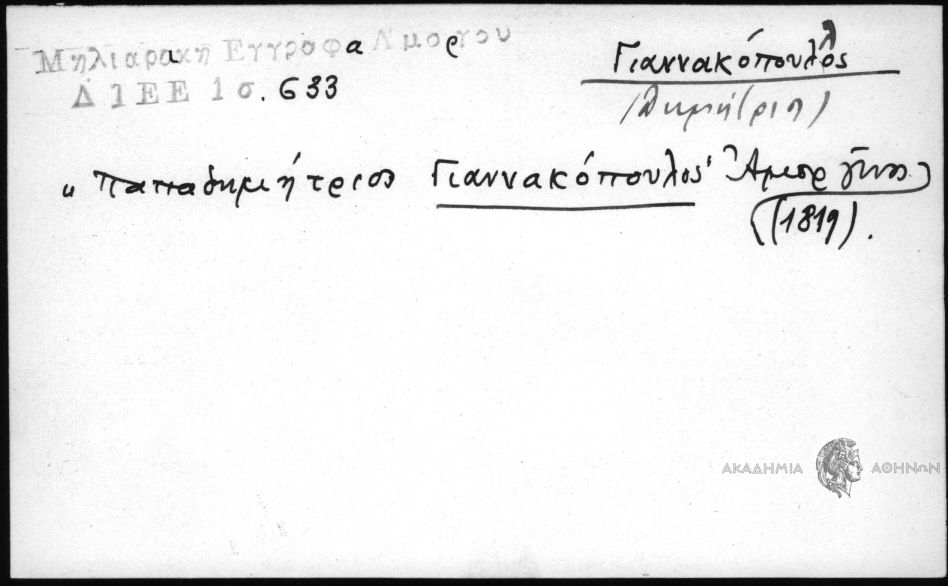 Μηλιαρακη Εγγραφα Αμοργου
Δ ΙΕΕ 1 σ. 633
Γιαννακόπουλος
(Δημήτριος)
"Παπαδημήτριος Γιαννακόπουλος" Ἀμοργῖνος
(1819).
ΑΚΑΔΗΜΙΑ ΑΘΗΝΩΝ